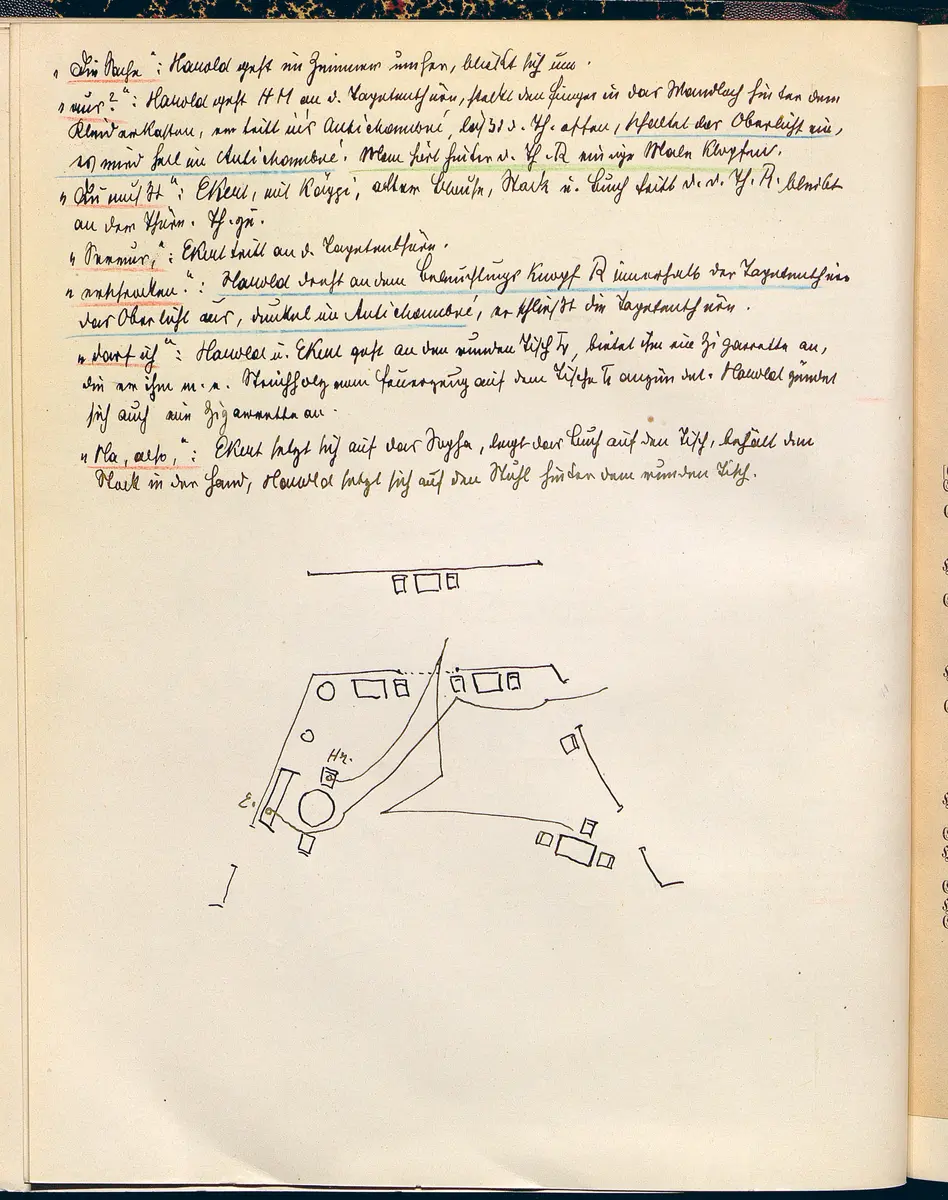 „Die Sache“: Harold geht im Zimmer umher, blickt sich um.
„aus?“: Harold geht HM an d. Tapetenthüre, steckt den Finger in das Wandloch hinter dem
Kleiderkasten, er tritt in's Antichambré, läßt d. Th. offen, schaltet das Oberlicht ein,
es wird hell im Antichambré. Man hört hinter d. Th. R einige Male Klopfen.
„Du mußt“: Ekert, mit Käppi, alter Blouse, Stock u. Buch tritt d. d. Th. R. bleibt
an der Thüre. Th. zu.
„Servus,“: Ekert tritt an d. Tapetenthüre.
„erschrocken.“: Harold dreht an dem Beleuchtungs Knopf R innerhalb der Tapetenthüre
das Oberlicht aus, dunkel im Antichambré, er schließt die Tapetenthüre.
„darf ich“: Harold u. Ekert geht an den runden Tisch, bietet ihm eine Zigarette an,
die er ihm m. e. Streichholz vom Feuerzeug auf dem Tische anzündet. Harold zündet
sich auch eine Zigarette an.
„Na, also,“: Ekert setzt sich auf das Sopha, legt das Buch auf den Tisch, behält den
Stock in der Hand, Harold setzt sich auf den Stuhl hinter dem runden Tisch.
Hr.
E.